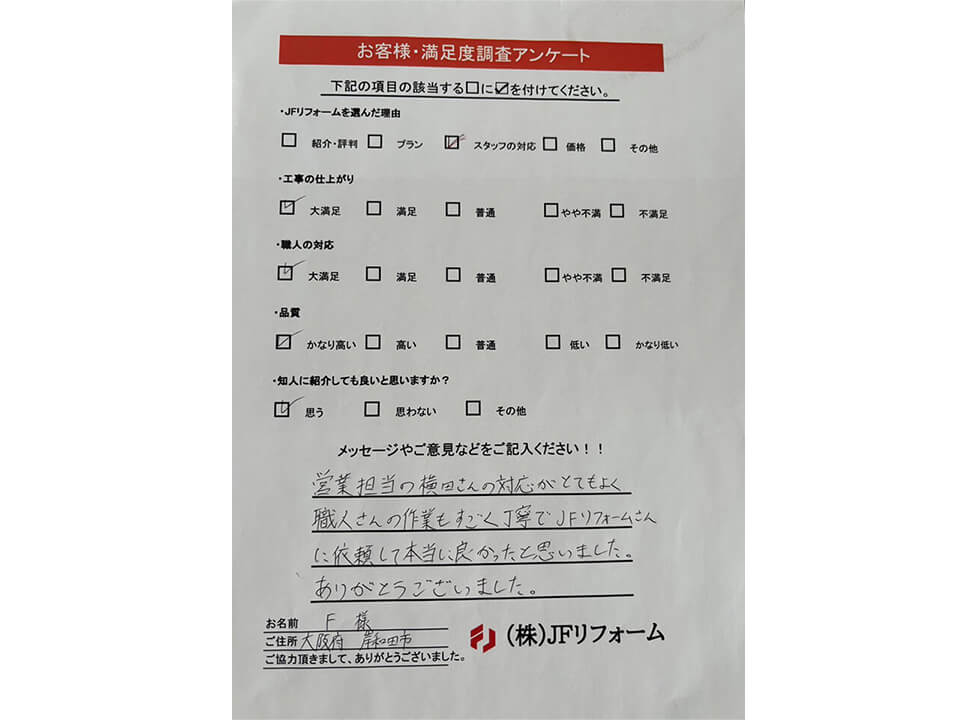 お客様・満足度調査アンケート
下記の項目の該当する□に☑を付けてください。
・JFリフォームを選んだ理由
□ 紹介・評判 □ プラン ☑ スタッフの対応 □ 価格 □ その他
・工事の仕上がり
☑ 大満足 □ 満足 □ 普通 □ やや不満 □ 不満足
・職人の対応
☑ 大満足 □ 満足 □ 普通 □ やや不満 □ 不満足
・品質
☑ かなり高い □ 高い □ 普通 □ 低い □ かなり低い
・知人に紹介しても良いと思いますか？
☑ 思う □ 思わない □ その他
メッセージやご意見などをご記入ください！！
営業担当の横田さんの対応がとてもよく
職人さんの作業もすごく丁寧でJFリフォームさん
に依頼して本当に良かったと思いました。
ありがとうございました。
お名前 F 様
ご住所 大阪府 岸和田市
ご協力頂きまして、ありがとうございました。
(株)JFリフォーム